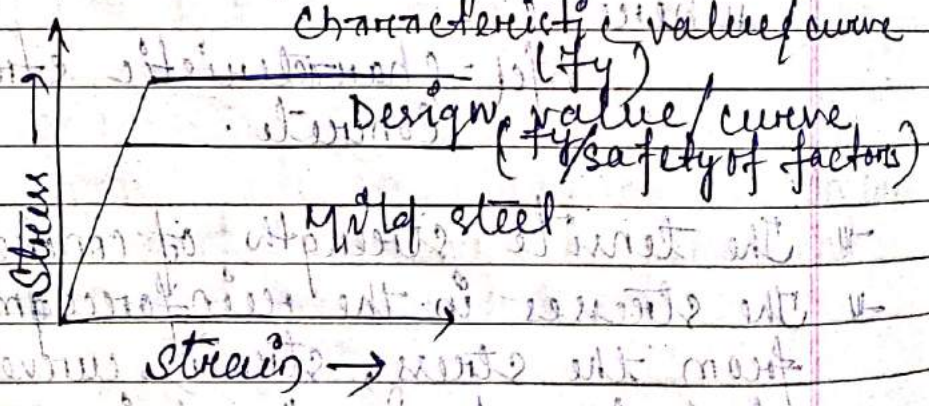 Characteristic value/curve
(fy)
Design value/curve
(fy/safety of factors)
Mild steel
Stress →
Strain →